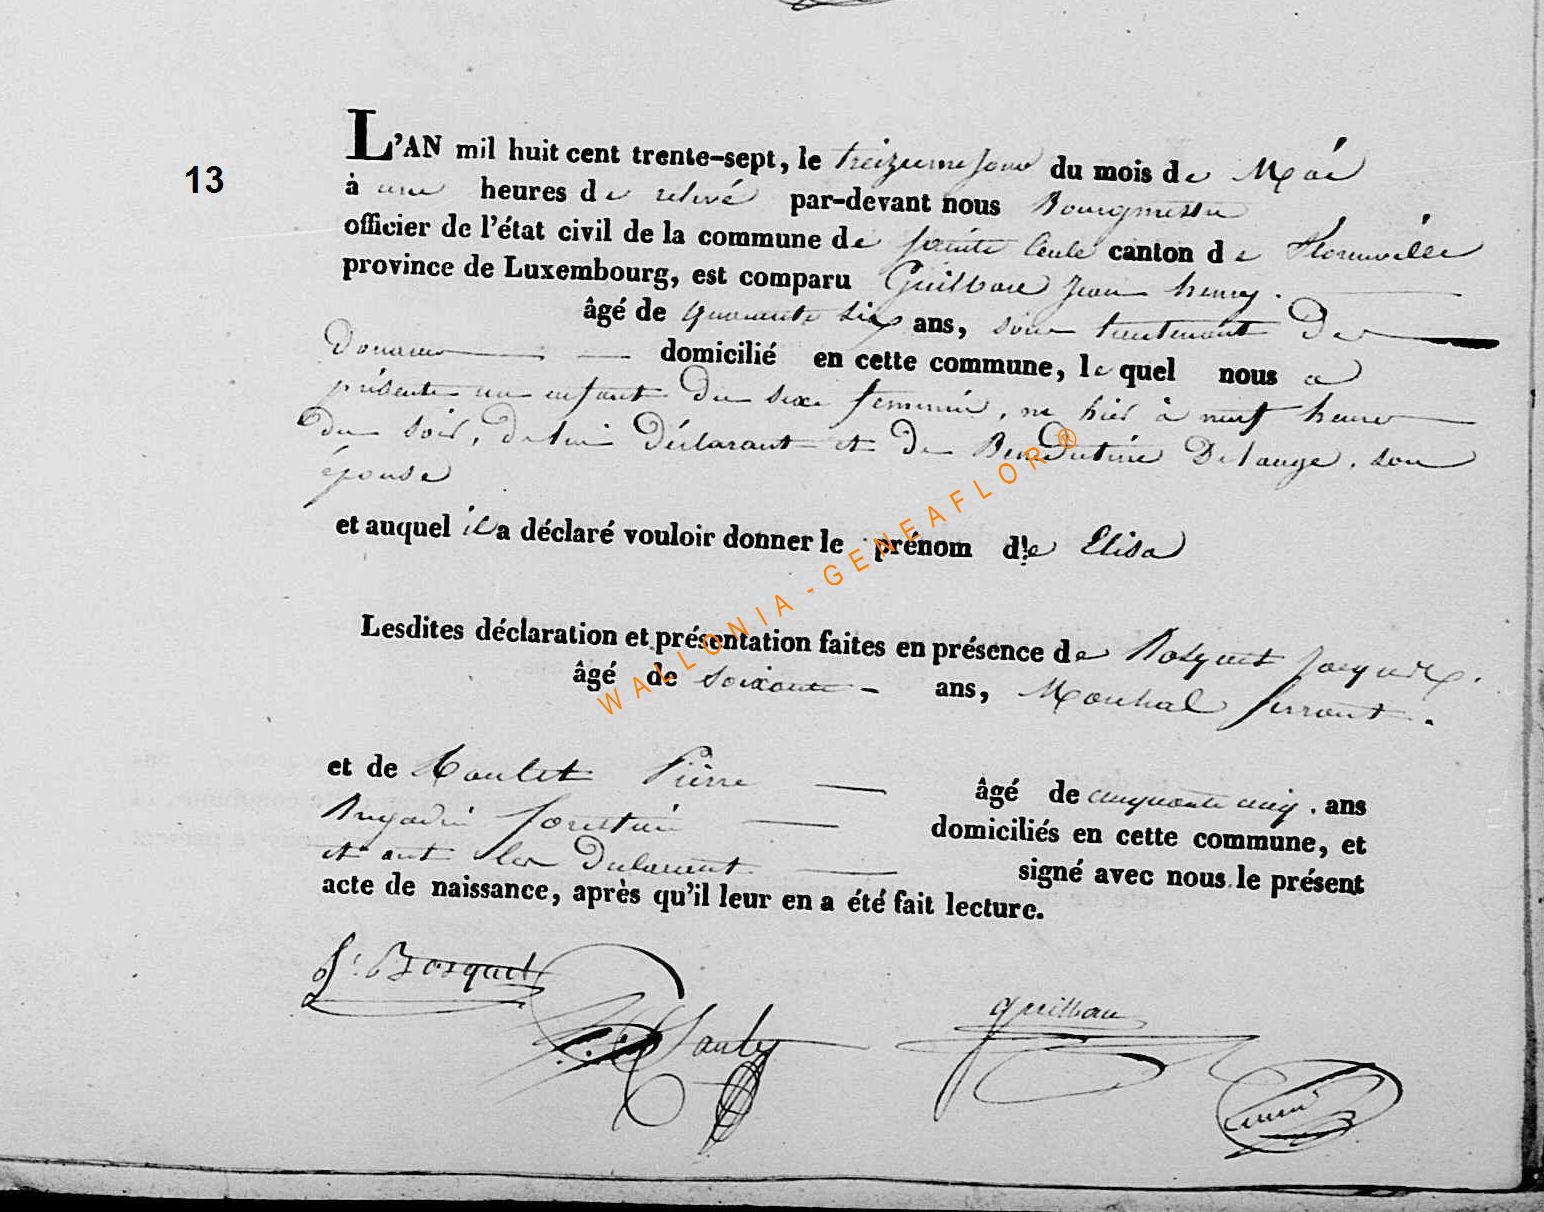 13
L'AN mil huit cent trente-sept, le treizieme jour du mois de Mai
à une heures de relevé par-devant nous Bourgmestre
officier de l'état civil de la commune de sainte Cecile canton de Florenville
province de Luxembourg, est comparu Guilbau Jean henry.
âgé de quarante six ans, sous lieutenant Des
Douanes domicilié en cette commune, le quel nous a
présenté un enfant Du sexe feminin, né hier à neuf heures
Du soir, De lui Déclarant et De Benedictine Delauge, son
épouse
et auquel il a déclaré vouloir donner le prénom de Elisa
Lesdites déclaration et présentation faites en présence de Bosquet Jacques.
âgé de soixante ans, Marechal ferrant.
et de Pierre âgé de cinquante cinq. ans
Brigadier forestier domiciliés en cette commune, et
et ont les Declarant signé avec nous le présent
acte de naissance, après qu'il leur en a été fait lecture.
J. Bosquet
guilbau
WALLONIA - GENEAFLOR ®